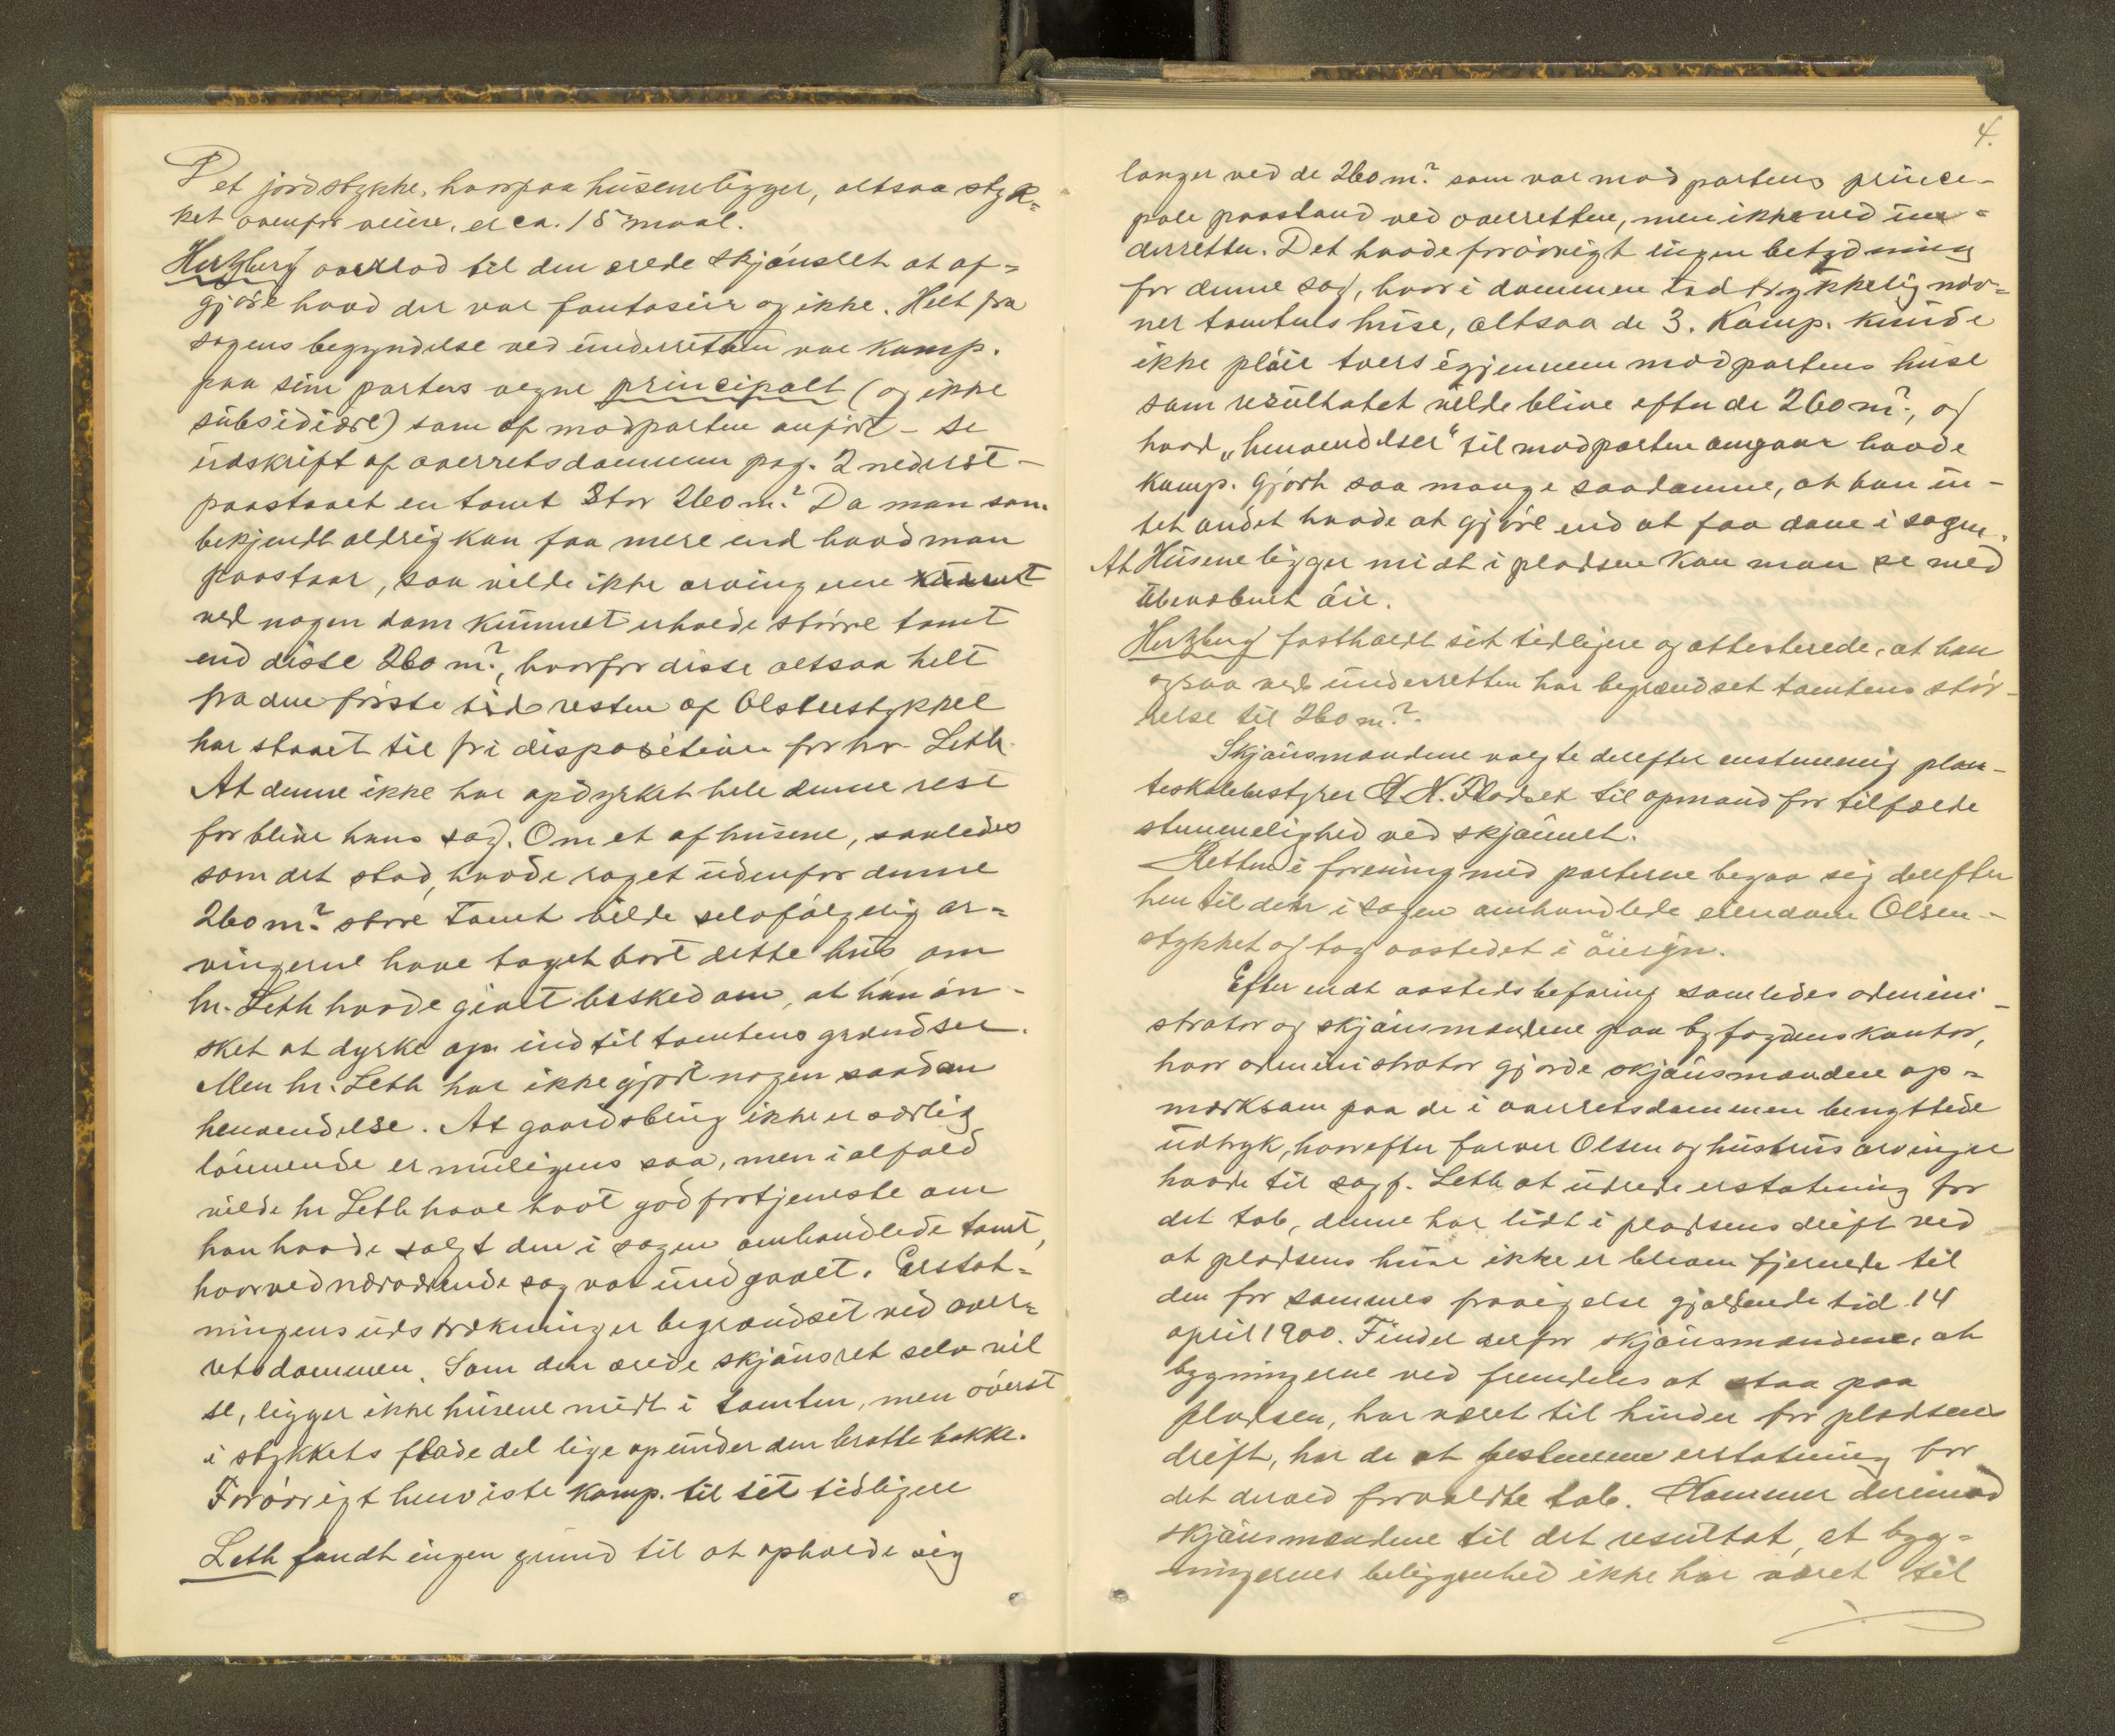 Det jordstykke, hvorpaa husene ligger, altsaa styk-
ket ovenfor veien, er ca. 15 maal.
Hertzberg overlod til den ærede skjønsret at af-
gjöre hvad der var fantasier og ikke. Helt fra
sagens begyndelse ved underretten var komp.
paa sine parters vegne principalt (og ikke
subsidiært) som af modparten anført - se
udskrift af overretsdommen pag. 2 nederst -
paastaaet en tomt stor 260 m². Da man som
bekjendt aldrig kan faa mere end hvad man
paastaar, saa vilde ikke arvingerne
ved nogen dom kunnet erholde större tomt
end disse 260 m², hvorfor disse altsaa helt
fra den förste tid resten af Olsenstykket
har staaet til fri disposition for hr. Leth.
At denne ikke har opdyrket hele denne rest
for blive hans sag. Om et af husene, saaledes
som det stod, havde raget udenfor denne
260 m² store tomt vilde selvfølgelig ar-
vingerne have taget bort dette hus om
hr. Leth havde givet besked om, at han øn-
sket at dyrke op ind til tomtens grændser.
Men hr. Leth har ikke gjort nogen saadan
henvendelse. At gaardsbrug ikke er særlig
lönnende er muligens saa, men i alfald
vilde hr Leth have havt god fortjeneste om
han havde solgt den i sagen omhandlede tomt,
hvorved nærværende sag var undgaaet. Erstat-
ningens udstrækninger begrændset ved over-
retsdommen. Som den ærede skjönsret selv vil
se, ligger ikke husene midt i tomten, men överst
i stykkets flade del lige op under den bratte bakke.
Forövrigt henviste komp. til sit tidligere
Leth fandt ingen grund til at opholde sig
4.
længer ved de 260 m² som var modpartens princi-
pale paastand ved overretten, men ikke ved un-
derretten. Det havde forövrigt ingen betydning
for denne sag, hvor i dommen udtrykkelig næv-
ner tomtens huse, altsaa de 3. Komp. kunde
ikke plöie tvers igjennem modpartens huse
som resultatet vilde blive efter de 260 m², og
hvad "henvendelser" til modparten angaar havde
komp. gjort saa mange saadanne, at han in-
tet andet havde at gjöre end at faa dom i sagen.
At Husene ligger midt i pladsen kan man se med
übevæbnet öie.
Hertzberg fastholdt sit tidligere og attesterede, at han
ogsaa ved underretten har begrændset tomtens stör-
relse til 260 m².
Skjönsmændene valgte derefter enstemmig plan-
teskolebestyrer A. N. Fladset til opmand for tilfælde
stemmelighed ved skjönnet.
Retten i forening med parterne begav sig derefter
hen til den i sagen omhandlede eiendom Olsen-
stykket og tog aastedet i öiesyn.
Efter endt aastedsbefaring samledes admini-
strator og skjönsmændene paa byfogdens kontor,
hvor administrator gjorde skjönsmændene op-
mærksom paa de i overretsdommen benyttede
udtryk, hvorefter farver Olsen og hustrus arvinger
havde til sagf. Leth at udrede erstatning for
det tab, denne har lidt i pladsens drift ved
at pladsens huse ikke er bleven fjernede til
den for sammes fravigelse gjældende tid 14
april 1900. Finder derfor skjönsmændene, at
bygningerne ved fremdeles at staa paa
pladsen, har været til hinder for pladsens
drift, har de at bestemme erstatning for
det derved forvoldte tab. Kommer derimod
skjönsmændene til det resultat, at byg-
ningernes beliggenhed ikke har været til